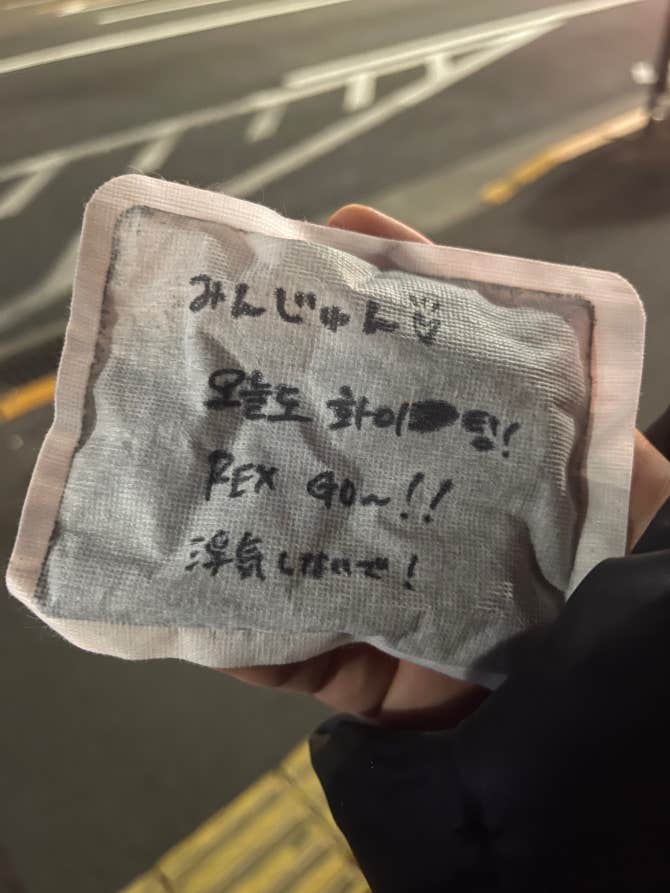 みんじゅん
오늘도 화이팅!
REX GO~!!
浮気しないで!